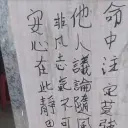 命中注定莫強
他人議論隨風
非凡志氣不可
安心在此靜